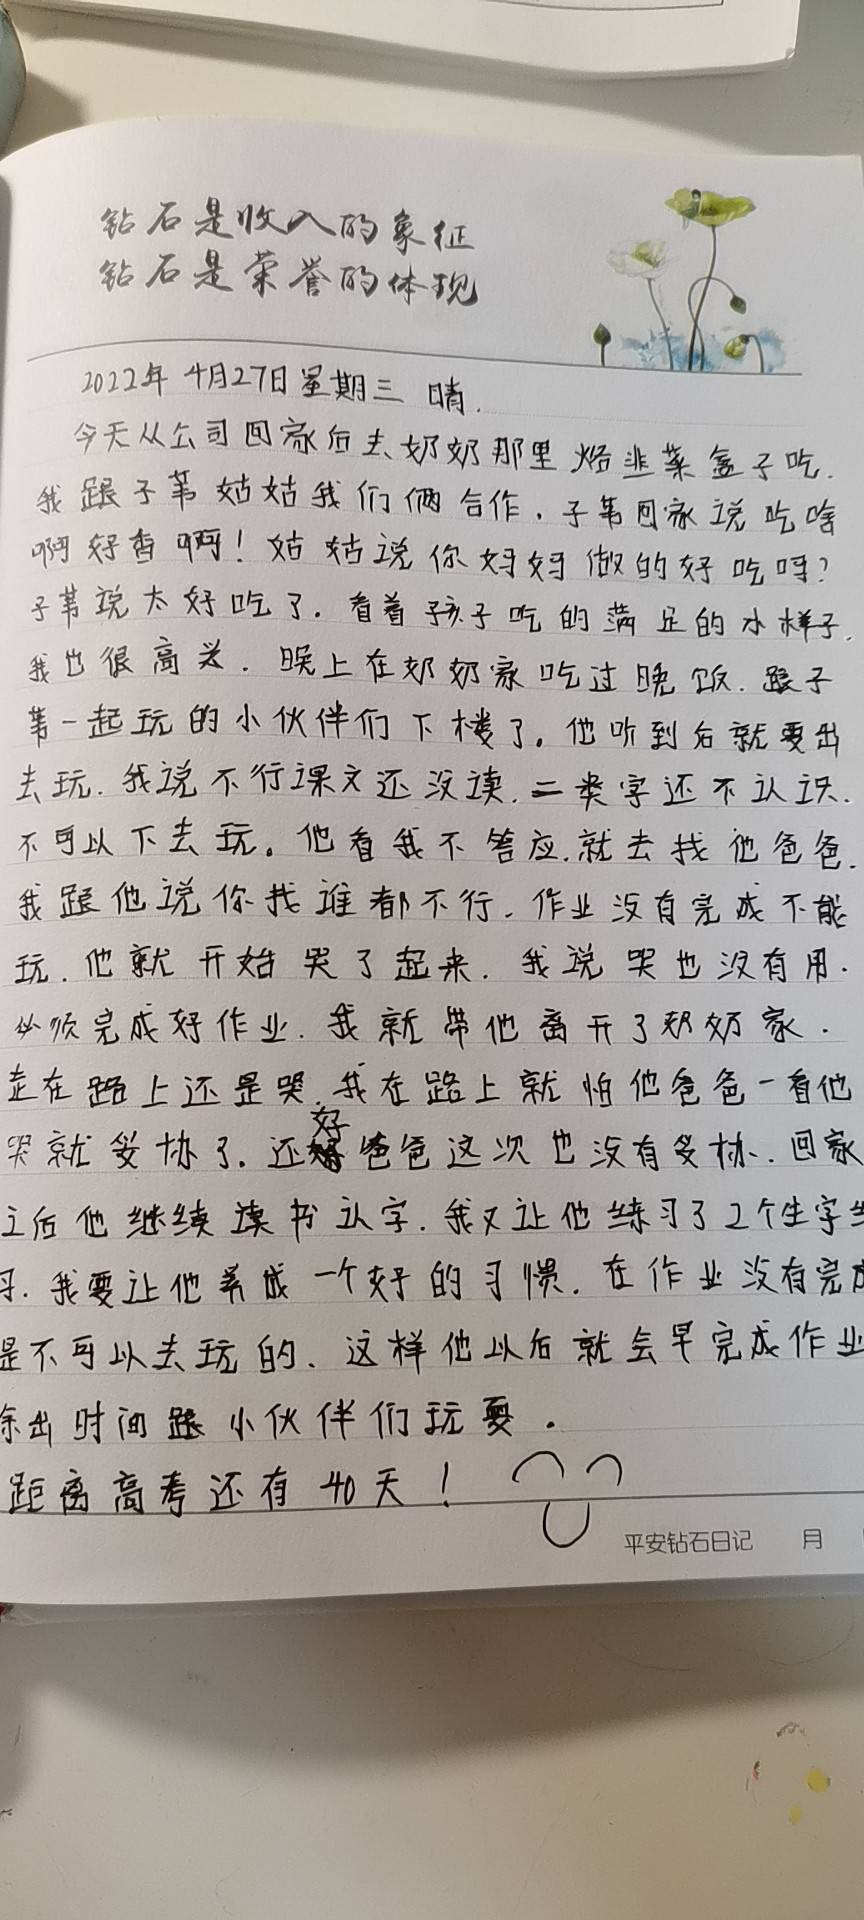 钻石是收入的象征
钻石是荣誉的体现
2022年4月27日星期三 晴.
今天从公司回家后去奶奶那里烙韭菜盒子吃.
我跟子苇姑姑我们俩合作.子苇回家说吃啥
啊好香啊!姑姑说你妈妈做的好吃吗?
子苇说太好吃了.看着孩子吃的满足的小样子.
我也很高兴.晚上在奶奶家吃过晚饭.跟子
苇一起玩的小伙伴们下楼了。他听到后就要出
去玩.我说不行课文还没读.二类字还不认识.
不可以下去玩。他看我不答应.就去找他爸爸.
我跟他说你找谁都不行.作业没有完成不能
玩.他就开始哭了起来.我说哭也没有用.
必须完成好作业.我就带他离开了奶奶家.
走在路上还是哭.我在路上就怕他爸爸一看他
哭就妥协了.还好爸爸这次也没有妥协.回家
之后他继续读书认字.我又让他练习了2个生字
习.我要让他养成一个好的习惯.在作业没有完成
是不可以去玩的.这样他以后就会早完成作业
余出时间跟小伙伴们玩耍.
距离高考还有40天!
平安钻石日记 月